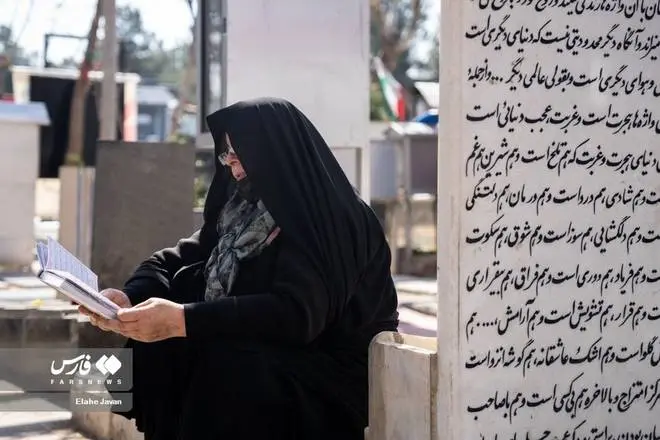 میماند و آنگاه دیگر محدودیتی نیست که دنیای دیگری است
و هوای دیگری است و بقولی عالمی دیگر ... واژه هجرت
واژه‌ها هجرت است و غربت عجب دنیائی است
دنیای هجرت و غربت که هم تلخ است و هم شیرین هم غم
است و هم شادی، هم درد است و هم درمان، هم دلتنگی
است و هم دلگشایی، هم سوز است و هم شوق، هم سکوت
است و هم فریاد، هم دوری است و هم فراق، هم بیقراری
است و هم قرار، هم تشویش است و هم آرامش، .... هم
گلو است و هم اشک عاشقانه، هم گوشه انزواست
مرکز امتزاج و بالاخره هم بی کسی است و هم با صاحب
فارس
FARSNEWS
Elahe Javan